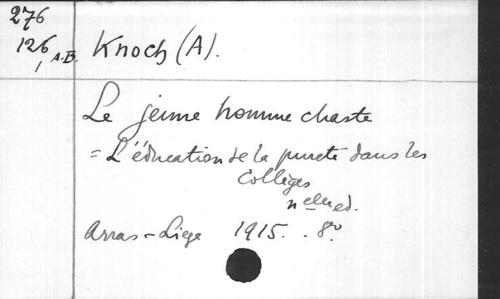 276
126, A.B.
Knoch (A).
Le jeune homme chaste
= L'éducation de la pureté dans les
Collèges
nelle ed.
Arras - Liege 1915. . 8º.